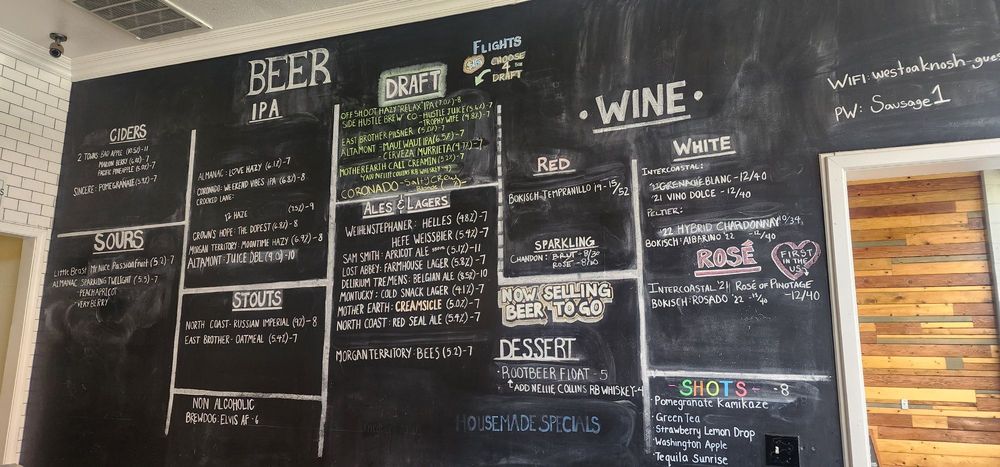 BEER
IPA
FLIGHTS
$15 CHOOSE
4
DRAFT
DRAFT
OFFSHOOT HAZY "RELAX" IPA (7.0%)-8
SIDE HUSTLE BREW CO.- HUSTLE JUICE (5.6%)-7
-TROPHY WIFE (4.8%)-7
EAST BROTHER PILSNER (5.0%)-7
ALTAMONT- MAUI WAUI IPA (6.5%)-7
-CERVEZA MURRIETA (4.7%)-7
MOTHER EARTH CALI CREAMIN (5.2%)-7
*ADD NELLIE COLLINS RB WHISKEY
CORONADO-Salty Crew
CIDERS
2 TOWNS: BAD APPLE (10.5%)-11
MARION BERRY
PACIFIC PINEAPPLE (5.0%)-7
SINCERE: POMEGRANATE (5.9%)-7
SOURS
Little Beast: Menace Passionfruit (5.2)-7
ALMANAC: SPARKLING TWILIGHT (5.5)-7
-PEACH APRICOT
-VERY BERRY
ALMANAC: LOVE HAZY (6.1%)-7
CORONADO: WEEKEND VIBES IPA (6.8%)-8
CROOKED LANE:
HAZE
(7.5%)-9
CROWN'S HOPE: THE DOPEST (6.8)-8
MORGAN TERRITORY: MOONTIME HAZY (6.9%)-8
ALTAMONT: JUICE DBL (9.0)-10
STOUTS
NORTH COAST-RUSSIAN IMPERIAL (9%)-8
EAST BROTHER- OATMEAL (5.4%)-7
NON ALCOHOLIC
BREWDOG: ELVIS AF -6
ALES & LAGERS
WEIHENSTEPHANER: HELLES (4.8%)-7
HEFE WEISSBIER (5.4%)-7
SAM SMITH: APRICOT ALE (5.1%)-11
LOST ABBEY: FARMHOUSE LAGER (5.8%)-7
DELIRIUM TREMENS: BELGIAN ALE (8.5%)-10
MONTUCKY: COLD SNACK LAGER (4.1%)-7
MOTHER EARTH: CREAMSICLE (5.0%)-7
NORTH COAST: RED SEAL ALE (5.4%)-7
MORGAN TERRITORY: BEES (5.2)-7
• WINE •
RED
BOKISCH-TEMPRANILLO 19-15/52
SPARKLING
CHANDON: BRUT-8/30
ROSE-8/30
NOW SELLING
BEER TO GO
DESSERT
-ROOTBEER FLOAT-5
ADD NELLIE COLLINS RB WHISKEY-4
HOUSEMADE SPECIALS
WHITE
INTERCOASTAL:
GRENACHE BLANC -12/40
'21 VINO DOLCE -12/40
PELTIER:
'22 HYBRID CHARDONNAY 10/34
BOKISCH: ALBARINO '22 -12/40
ROSÉ
FIRST
IN THE
US
INTERCOASTAL '21 ROSÉ OF PINOTAGE
-12/40
BOKISCH: ROSADO '22 -11/40
- SHOTS - -8
Pomegranate Kamikaze
Green Tea
Strawberry Lemon Drop
Washington Apple
Tequila Sunrise
WIFI: westoaknosh-gues
PW: Sausage1